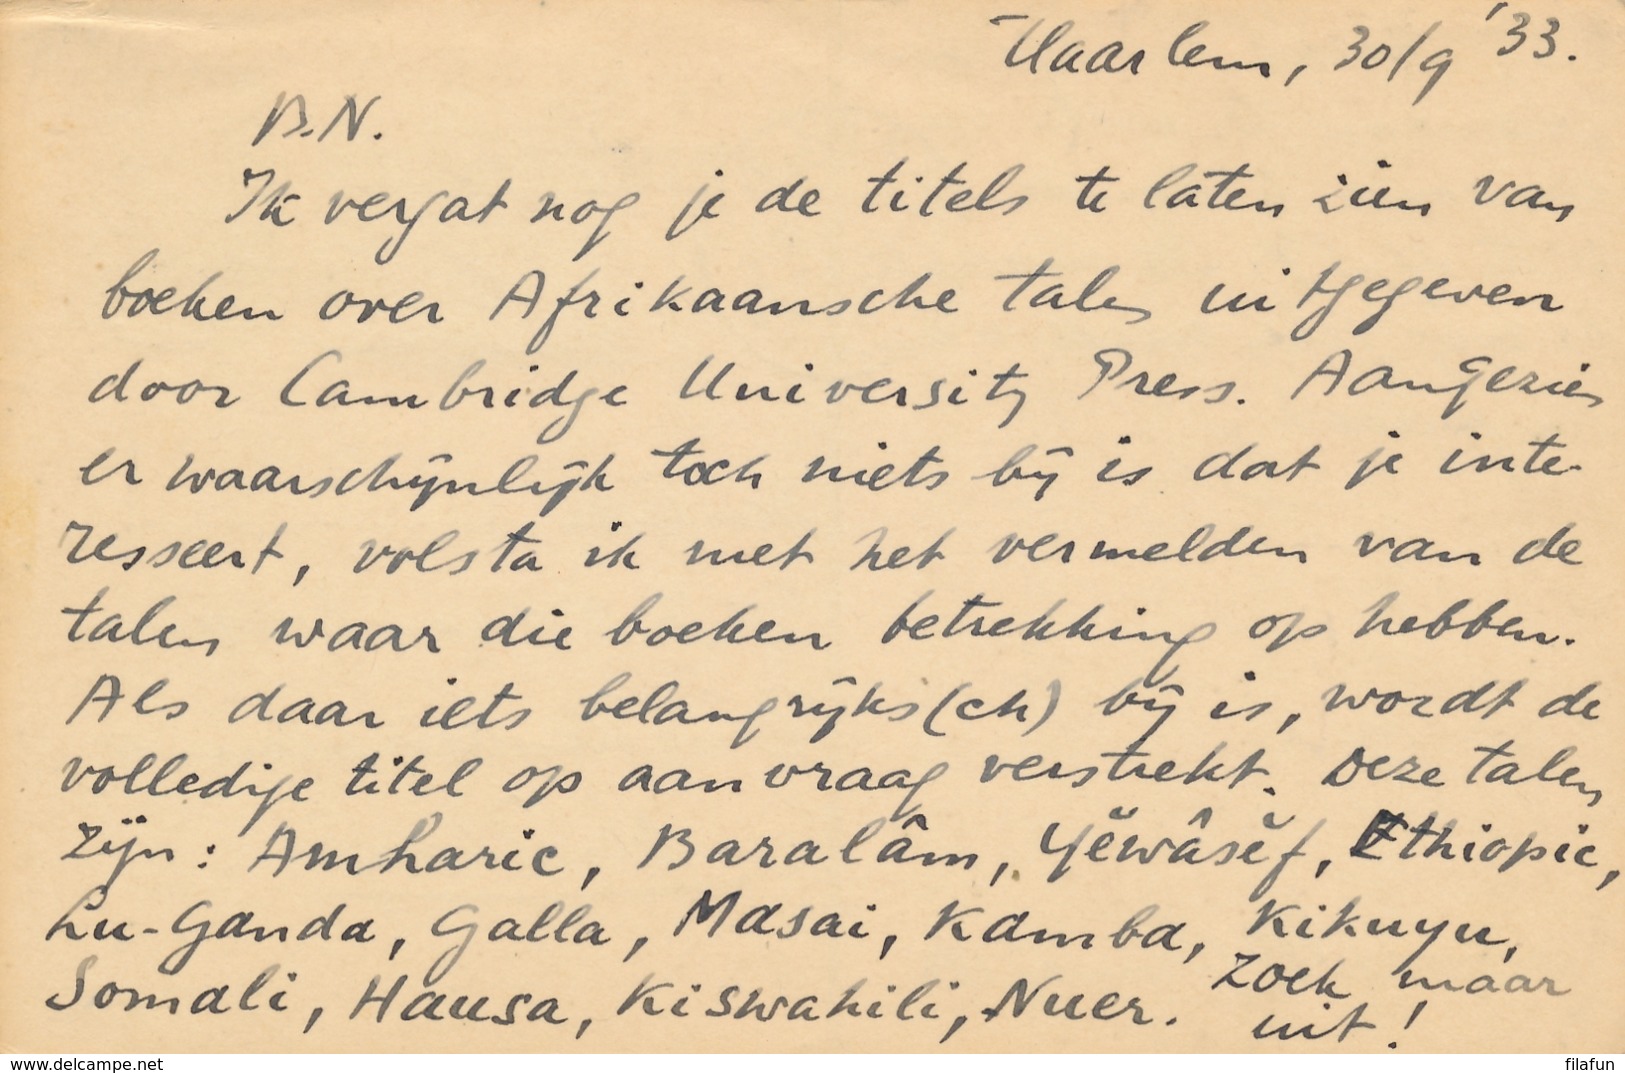 Haarlem, 30/9 '33.
B.N.
Ik vergat nog je de titels te laten zien van
boeken over Afrikaansche talen uitgegeven
door Cambridge University Press. Aangezien
er waarschijnlijk toch niets bij is dat je inte-
resseert, volsta ik met het vermelden van de
talen waar die boeken betrekking op hebben.
Als daar iets belangrijks(ch) bij is, wordt de
volledige titel op aanvraag verstrekt. Deze talen
zijn: Amharic, Baralâm, Yĕwâsĕf, Ethiopic,
Lu-Ganda, Galla, Masai, Kamba, Kikuyu,
Somali, Hausa, Kiswahili, Nuer. Zoek maar
uit!
Delcampe.net
filafun